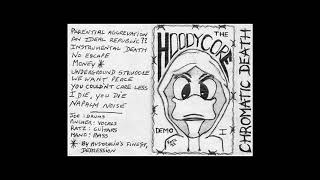 PARENTAL AGGREVATION
AN IDEAL REPUBLIC??
INSTRUMENTAL DEATH
NO ESCAPE
MONEY *
UNDERGROUND STRUGGLE
WE WANT PEACE
YOU COULDN'T CARE LESS
I DIE, YOU DIE
NAPALM NOISE
JOE: DRUMS
PINCHER: VOCALS
RATZ: GUITARS
MANO: BASS
* - BY AUSTRALIA'S FINEST,
DEPRESSION
THE
HOODYCORE
DEMO
I
CHROMATIC DEATH